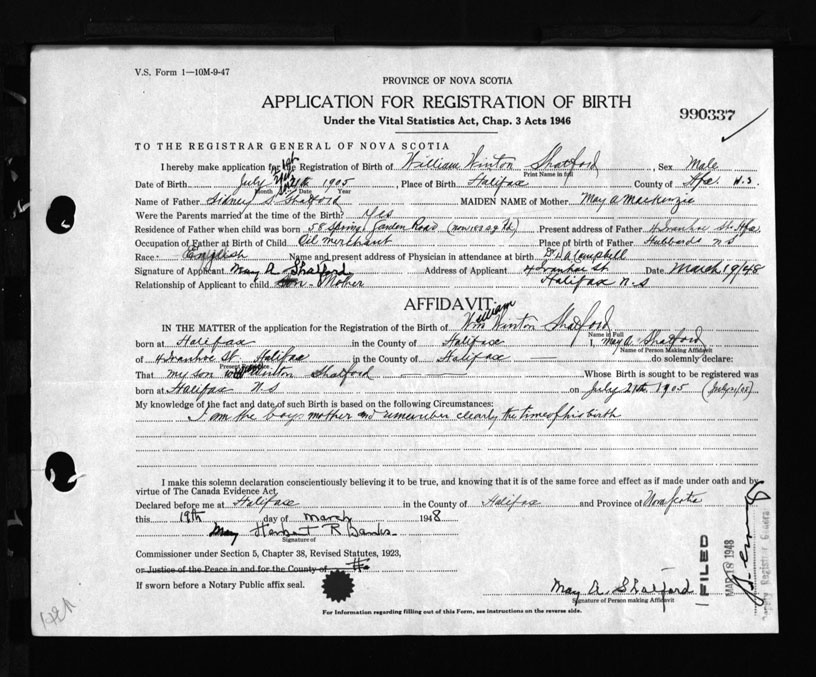 V.S. Form 1—10M-9-47
PROVINCE OF NOVA SCOTIA
APPLICATION FOR REGISTRATION OF BIRTH
990337
Under the Vital Statistics Act, Chap. 3 Acts 1946
TO THE REGISTRAR GENERAL OF NOVA SCOTIA
I hereby make application for the Registration of Birth of William Winton Shatford, Sex Male
Print Name in full
Date of Birth July 21st 1905, Place of Birth Halifax County of Hfx. N.S.
Month Date Year
Name of Father Sidney S. Shatford MAIDEN NAME of Mother May A Mackenzie
Were the Parents married at the time of the Birth? Yes
Residence of Father when child was born 58 Spring Garden Road (now Present address of Father 4 Ivanhoe St. Hfx.
Occupation of Father at Birth of Child Oil merchant Place of birth of Father Hubbards N S
Race English Name and present address of Physician in attendance at birth Dr D A Campbell
Signature of Applicant May A Shatford Address of Applicant 4 Ivanhoe St. Date March 19/48
Relationship of Applicant to child Son Mother Halifax N.S
AFFIDAVIT
William
IN THE MATTER of the application for the Registration of the Birth of Wm Winton Shatford
Name in Full
born at Halifax in the County of Halifax I, May A. Shatford
Name of Person Making Affidavit
of 4 Ivanhoe St. Halifax in the County of Halifax do solemnly declare:
Present
That my son Winton Shatford Whose Birth is sought to be registered was
born at Halifax N S on July 21st 1905 (July 21/05)
My knowledge of the fact and date of such Birth is based on the following Circumstances:
I am the boys mother and remember clearly the time of his birth
I make this solemn declaration conscientiously believing it to be true, and knowing that it is of the same force and effect as if made under oath and by
virtue of The Canada Evidence Act.
Declared before me at Halifax in the County of Halifax and Province of Nova Scotia
this 19th day of March 1948
Herbert R Banks
Signature of
Commissioner under Section 5, Chapter 38, Revised Statutes, 1923,
or Justice of the Peace in and for the County of
If sworn before a Notary Public affix seal.
May A. Shatford
Signature of Person making Affidavit
For Information regarding filling out of this Form, see instructions on the reverse side.
FILED
MAR 18 1948
Deputy Registrar General